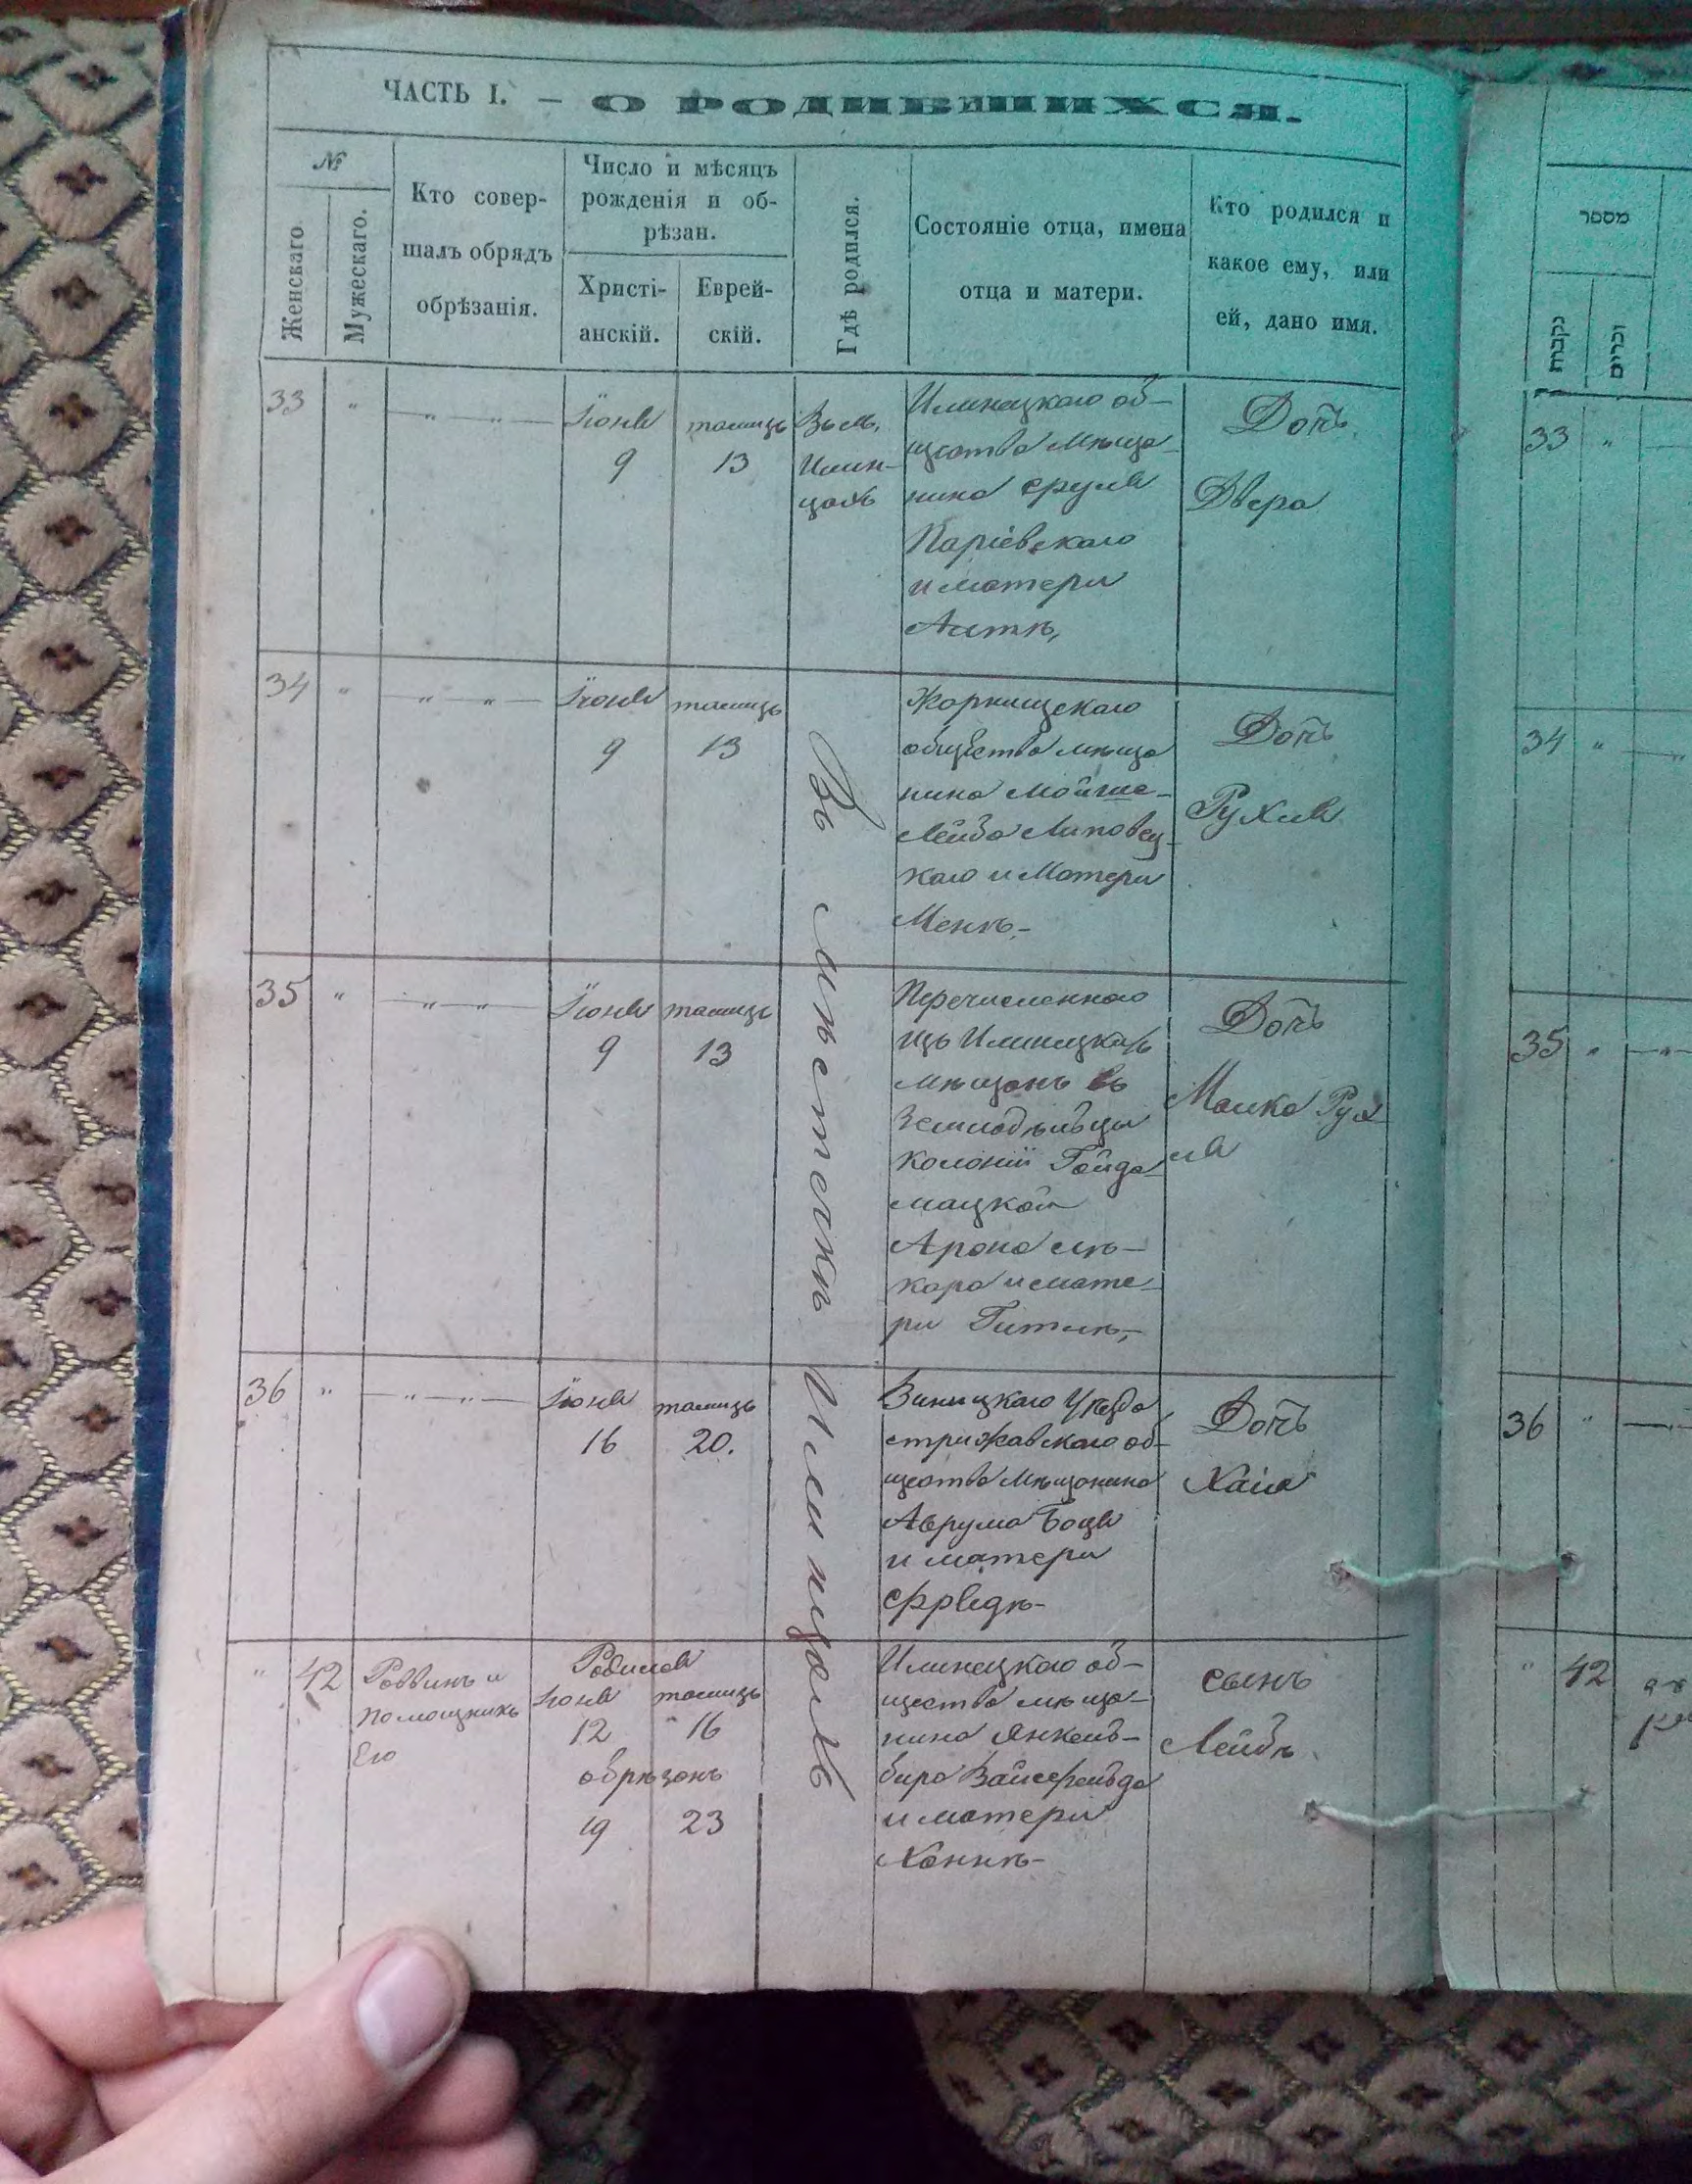 ЧАСТЬ I. — О РОДИВШИХСЯ.
№
Женскаго.
Мужескаго.
Кто совер-
шалъ обрядъ
обрѣзанія.
Число и мѣсяцъ
рожденія и об-
рѣзан.
Христі-
анскій.
Еврей-
скій.
Гдѣ родился.
Состояніе отца, имена
отца и матери.
Кто родился и
какое ему, или
ей, дано имя.
33 " — " — " —
Іюня
9
тамузъ
13
Въ м.
Илин-
цахъ
Илинецкаго об-
щества мѣща-
нина Сруля
и матери
Дочъ
Двера
34 " — " — " —
Іюня
9
тамузъ
13
Въ мѣстечкѣ Илинцахъ
Жорнищскаго
общества мѣща
нина Мойше-
Лейба Липовец-
каго и Матери
Менѣ.-
Дочъ
Рухля
35 " — " — " —
Іюня
9
тамузъ
13
Перечисленнаго
изъ Илинецкихъ
мѣщанъ въ
Земледѣльцы
Колоніи Гайда-
мацкой
Арона
и мате-
ри Гитлѣ,-
Дочъ
Малка Рух
ля
36 " — " — " —
Іюня
16
тамузъ
20.
Виницкаго Уѣзда
Стрижавскаго об-
щества Мѣщанина
Аврума
и матери
Дочъ
Хаія
" 42
Раввинъ и
помощникъ
Его
Родился
Іюня
12
тамузъ
16
обрѣзанъ
19 23
Илинецкаго об-
щества мѣща-
нина Янкель-
бира Вайсфельда
и матери
Ханнѣ-
сынъ
Лейбъ
מספר
נקבות
וזכרים
33 "
34 "
35 "
36 "
" 42